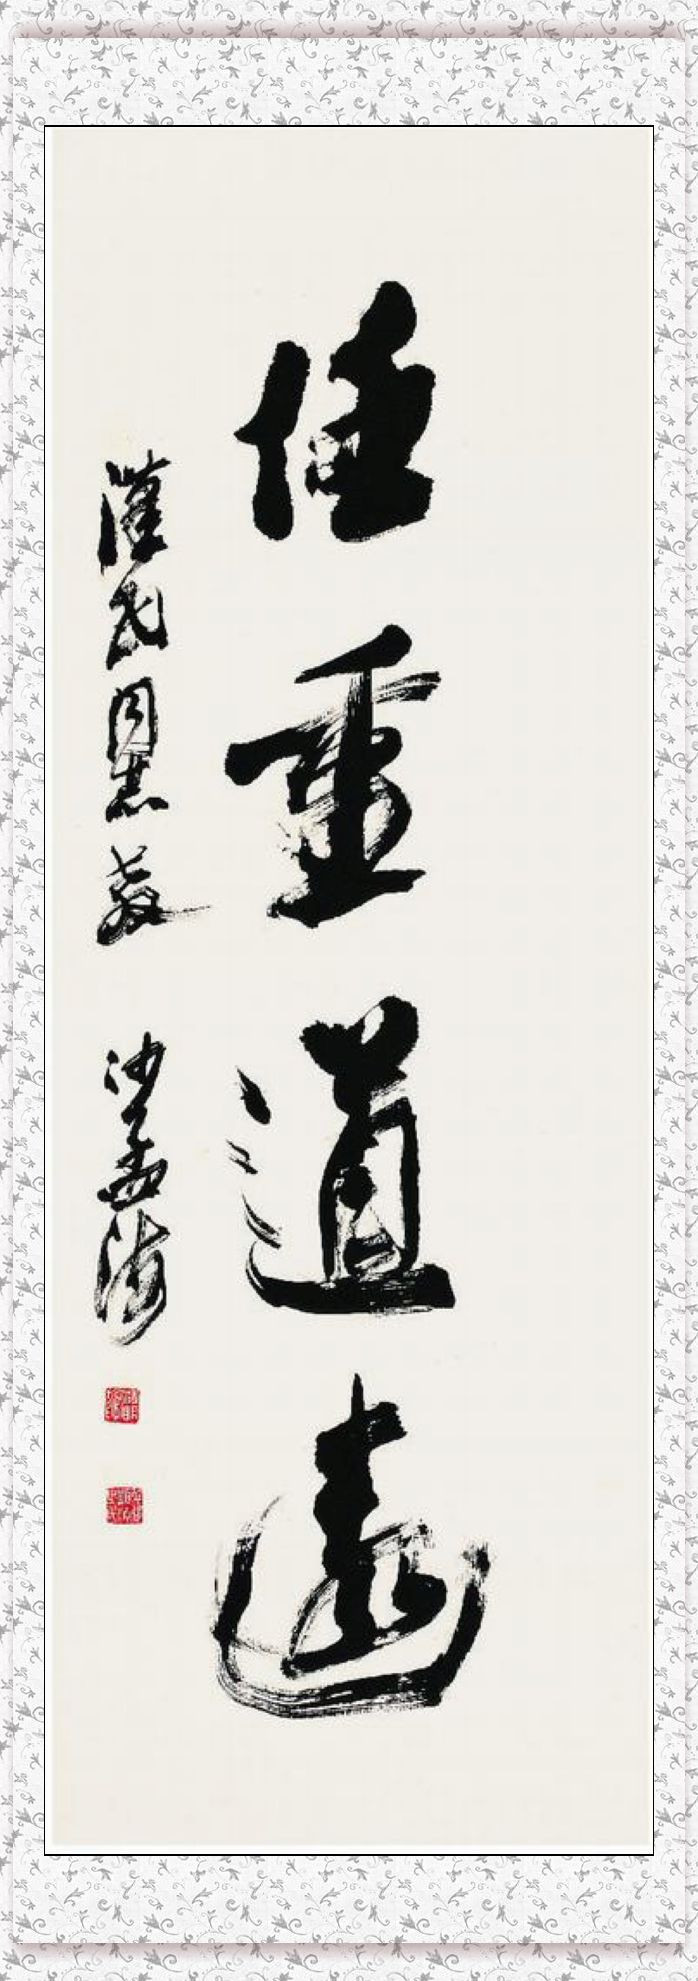 任重道遠
漢民同志教 沙孟海